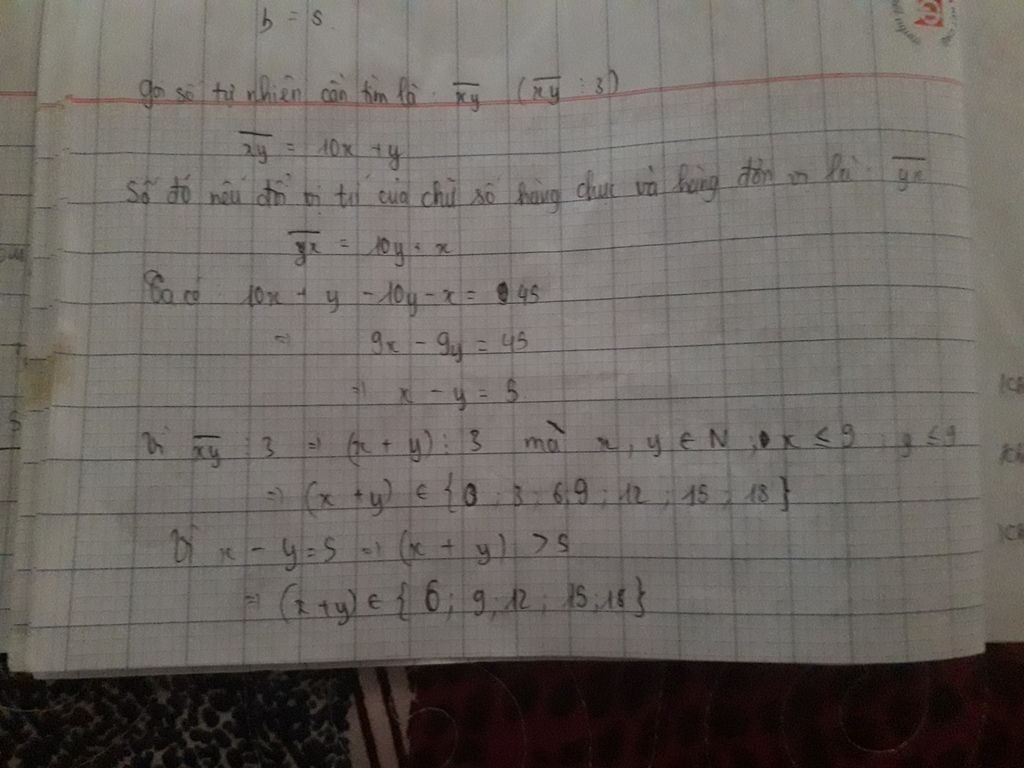 b = s
gọi số tự nhiên cần tìm là : xy (xy ⋮ 3)
xy = 10x + y
Số đó nếu đổi vị trí của chữ số hàng chục và hàng đơn vị là : yx
yx = 10y + x
Ta có : 10x + y - 10y - x = 45
=> 9x - 9y = 45
=> x - y = 5
Vì xy ⋮ 3 => (x + y) ⋮ 3 mà x, y ∈ N ; x ≤ 9 ; y ≤ 9
=> (x + y) ∈ { 0 ; 3 ; 6 ; 9 ; 12 ; 15 ; 18 }
Vì x - y = 5 => (x + y) > 5
=> (x + y) ∈ { 6 ; 9 ; 12 ; 15 ; 18 }